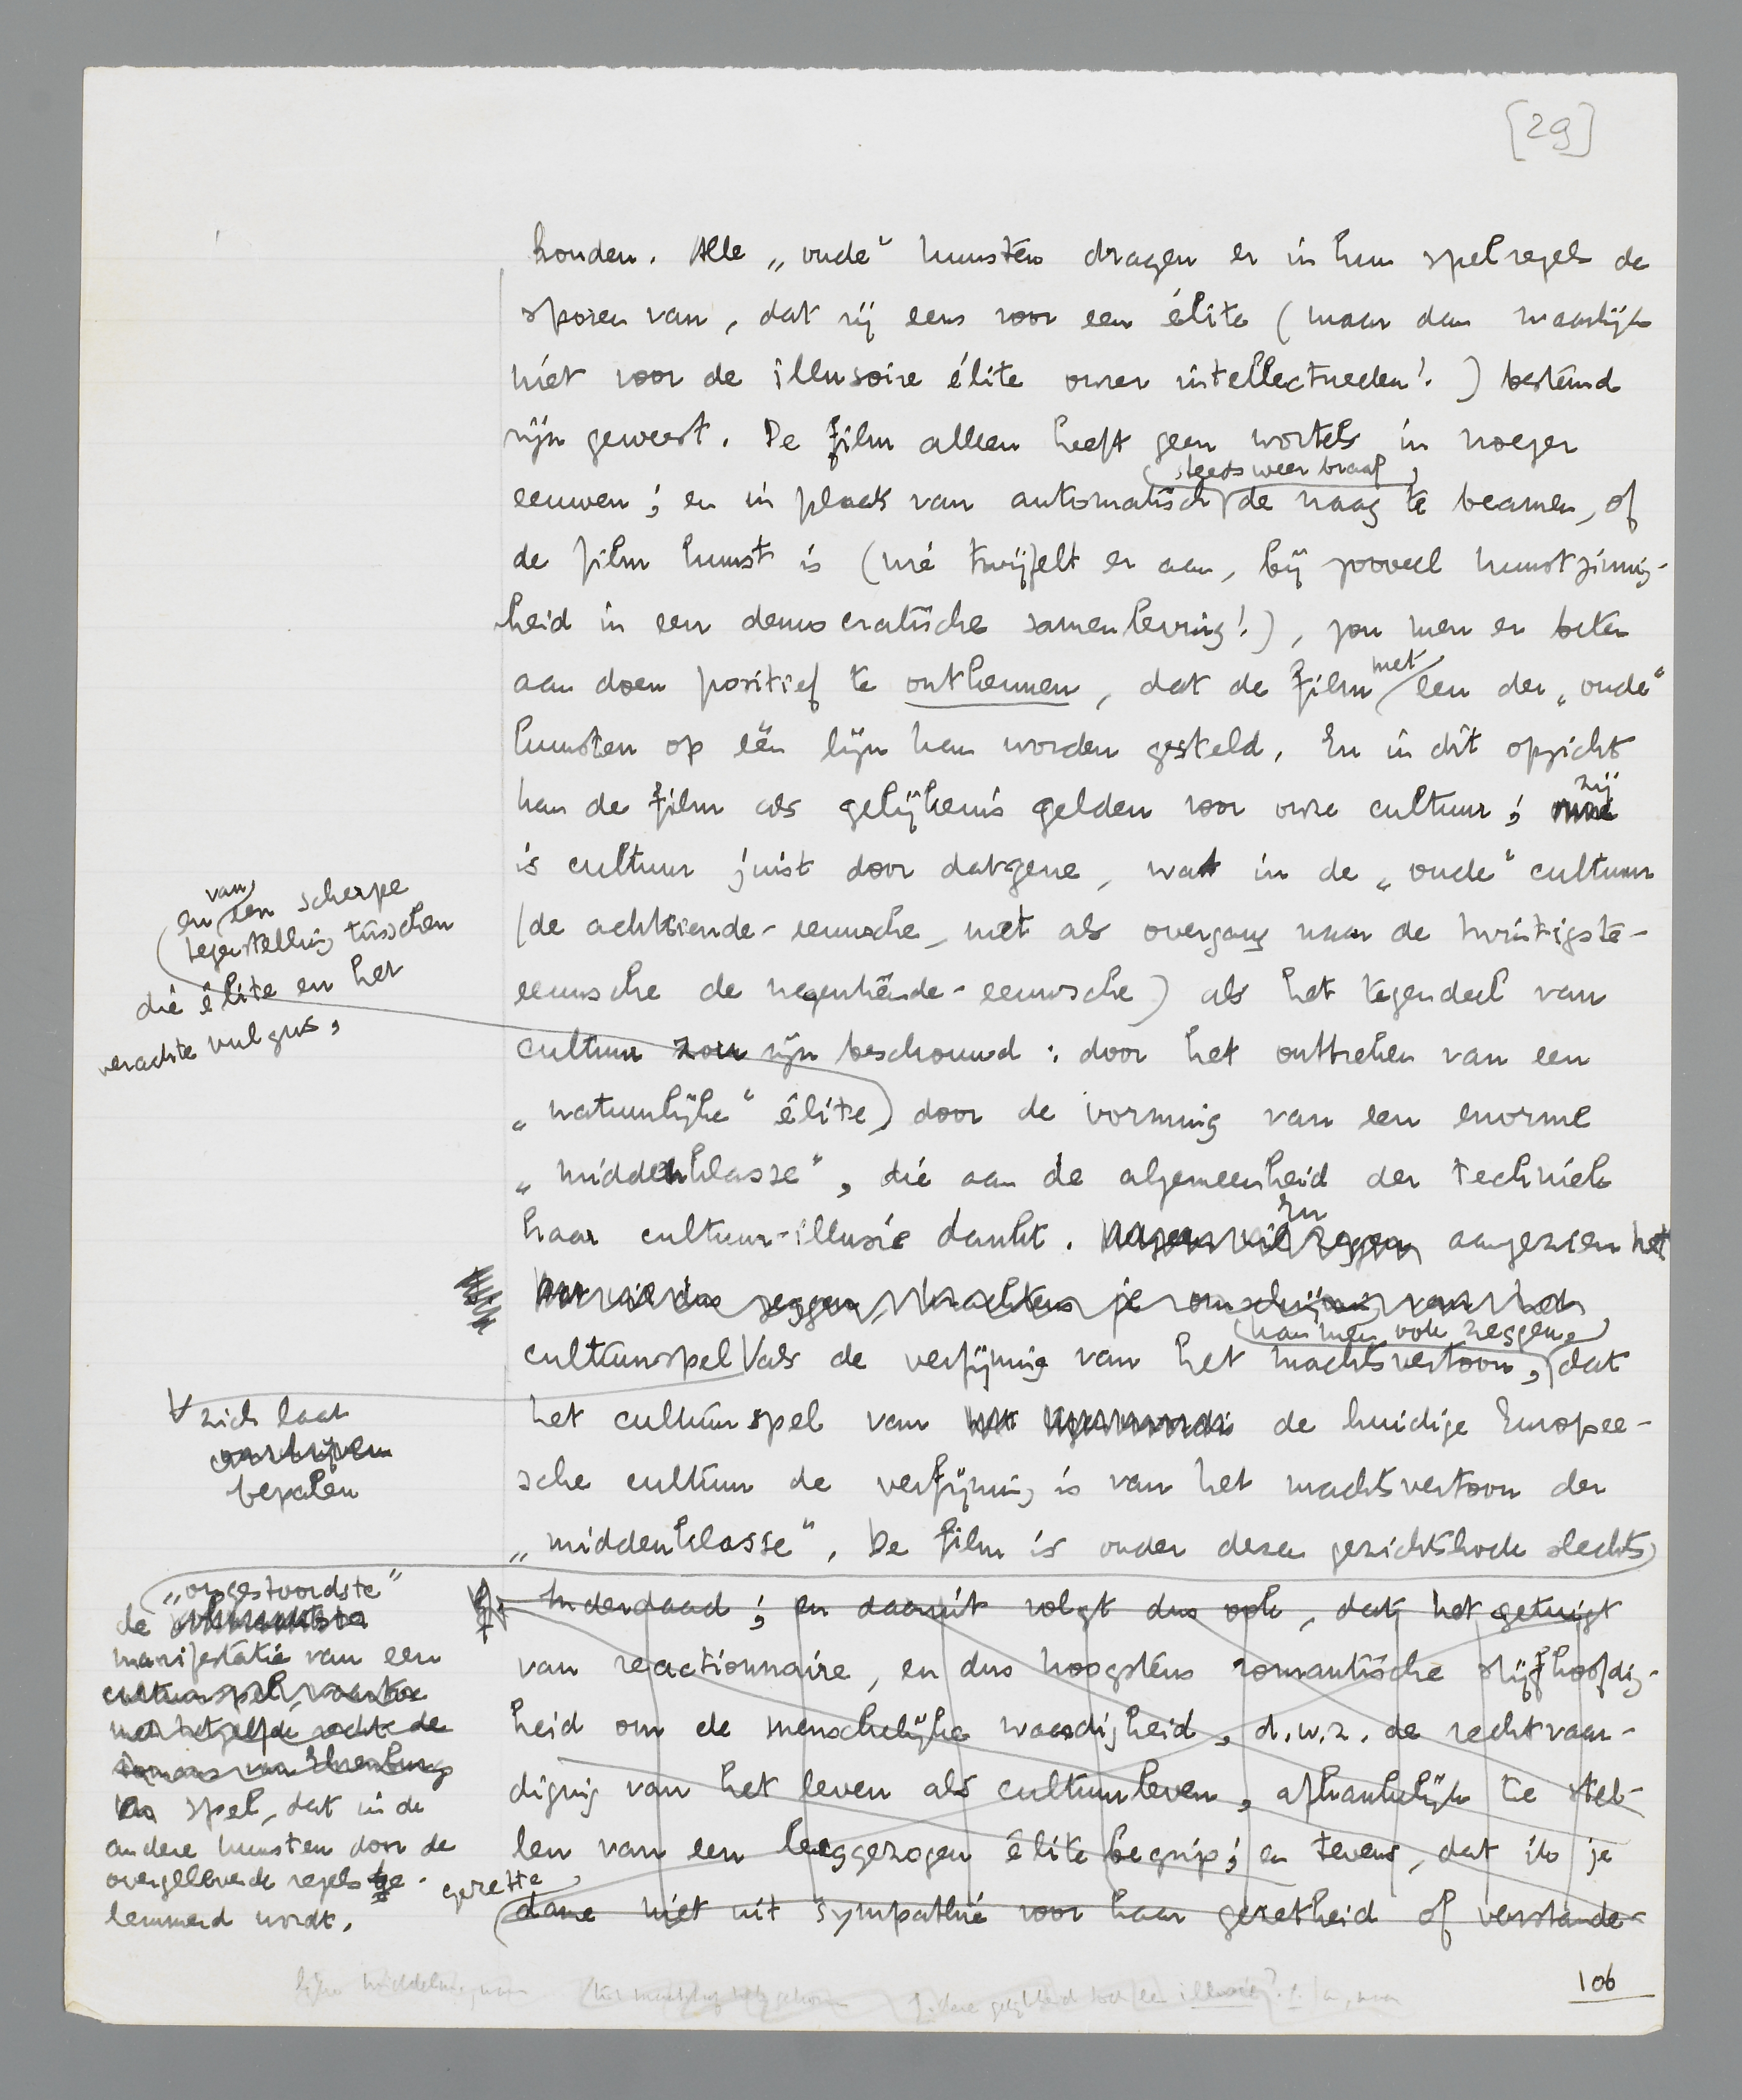 [29]
houden. Alle „oude" kunsten dragen er in hun spelregels de
sporen van, dat zij eens voor een élite (maar dan waarlijk
niet voor de illusoire élite onzer intellectueelen!) bestemd
zijn geweest. De film alleen heeft geen wortels in vroeger
steeds weer braaf
eeuwen; en in plaats van automatisch de vraag te beamen, of
de film kunst is (wie twijfelt er aan, bij zooveel kunstzinnig-
heid in een democratische samenleving!), zou men er beter
met
aan doen positief te ontkennen, dat de film een der „oude"
kunsten op één lijn kan worden gesteld. En in dit opzicht
zij
kan de film als gelijkenis gelden voor onze cultuur; onze
is cultuur juist door datgene, wat in de „oude" cultuur
(de achttiende-eeuwsche, met als overgang naar de twintigste-
eeuwsche de negentiende-eeuwsche) als het tegendeel van
cultuur zou zijn beschouwd: door het onttrekken van een
„natuurlijke" élite door de vorming van een enorme
„middenklasse", die aan de algemeenheid der techniek
En
haar cultuur-illusie dankt. aangezien het
kan men ook zeggen
cultuurspel als de verfijning van het machtsvertoon, dat
het cultuurspel van de huidige Europee-
sche cultuur de verfijning is van het machtsvertoon der
„middenklasse". De film is onder dezen gezichtshoek slechts
Inderdaad; en daaruit volgt dus ook, dat het getuigt
van reactionnaire, en dus hoogstens romantische stijfhoofdig-
heid om de menschelijke waardigheid, d.w.z. de rechtvaar-
diging van het leven als cultuurleven, afhankelijk te stel-
len van een leeggezogen élitebegrip; en tevens, dat ik je
dane niet uit sympathie voor haar gezetheid of verstande-
van
en een scherpe
tegenstelling tusschen
die élite en het
verachte vulgus,
zich laat
omschrijven
bepalen
„ongestoordste"
de
manifestatie van een
cultuurspel, waartoe
met hetzelfde recht de
romans van Ehrenburg
spel, dat in de
andere kunsten door de
overgeleverde regels be-
lemmerd wordt.
gezette
106